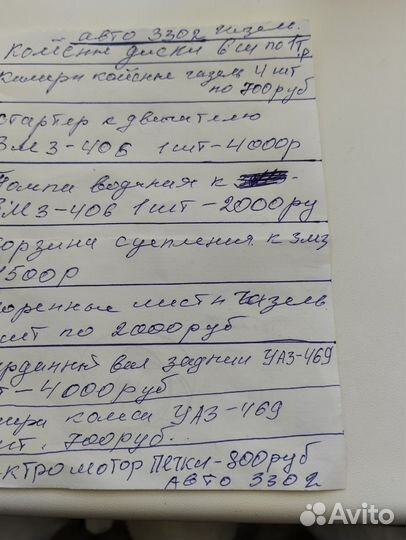 авто 3302 газель.
колёсные диски 6 шт по 1т.р
камеры колёсные газель 4 шт
по 700 руб
стартер к двигателю
ЗМЗ-406 1 шт-4000р
Помпа водяная к
ЗМЗ-406 1 шт-2000ру
орзина сцепления к змз
1500р
оренные листы газель
шт по 2000руб
арданный вал задний УАЗ-469
т-4000руб
мера колеса УАЗ-469
шт. 700руб.
ектромотор печки-800руб
авто 3302
Avito